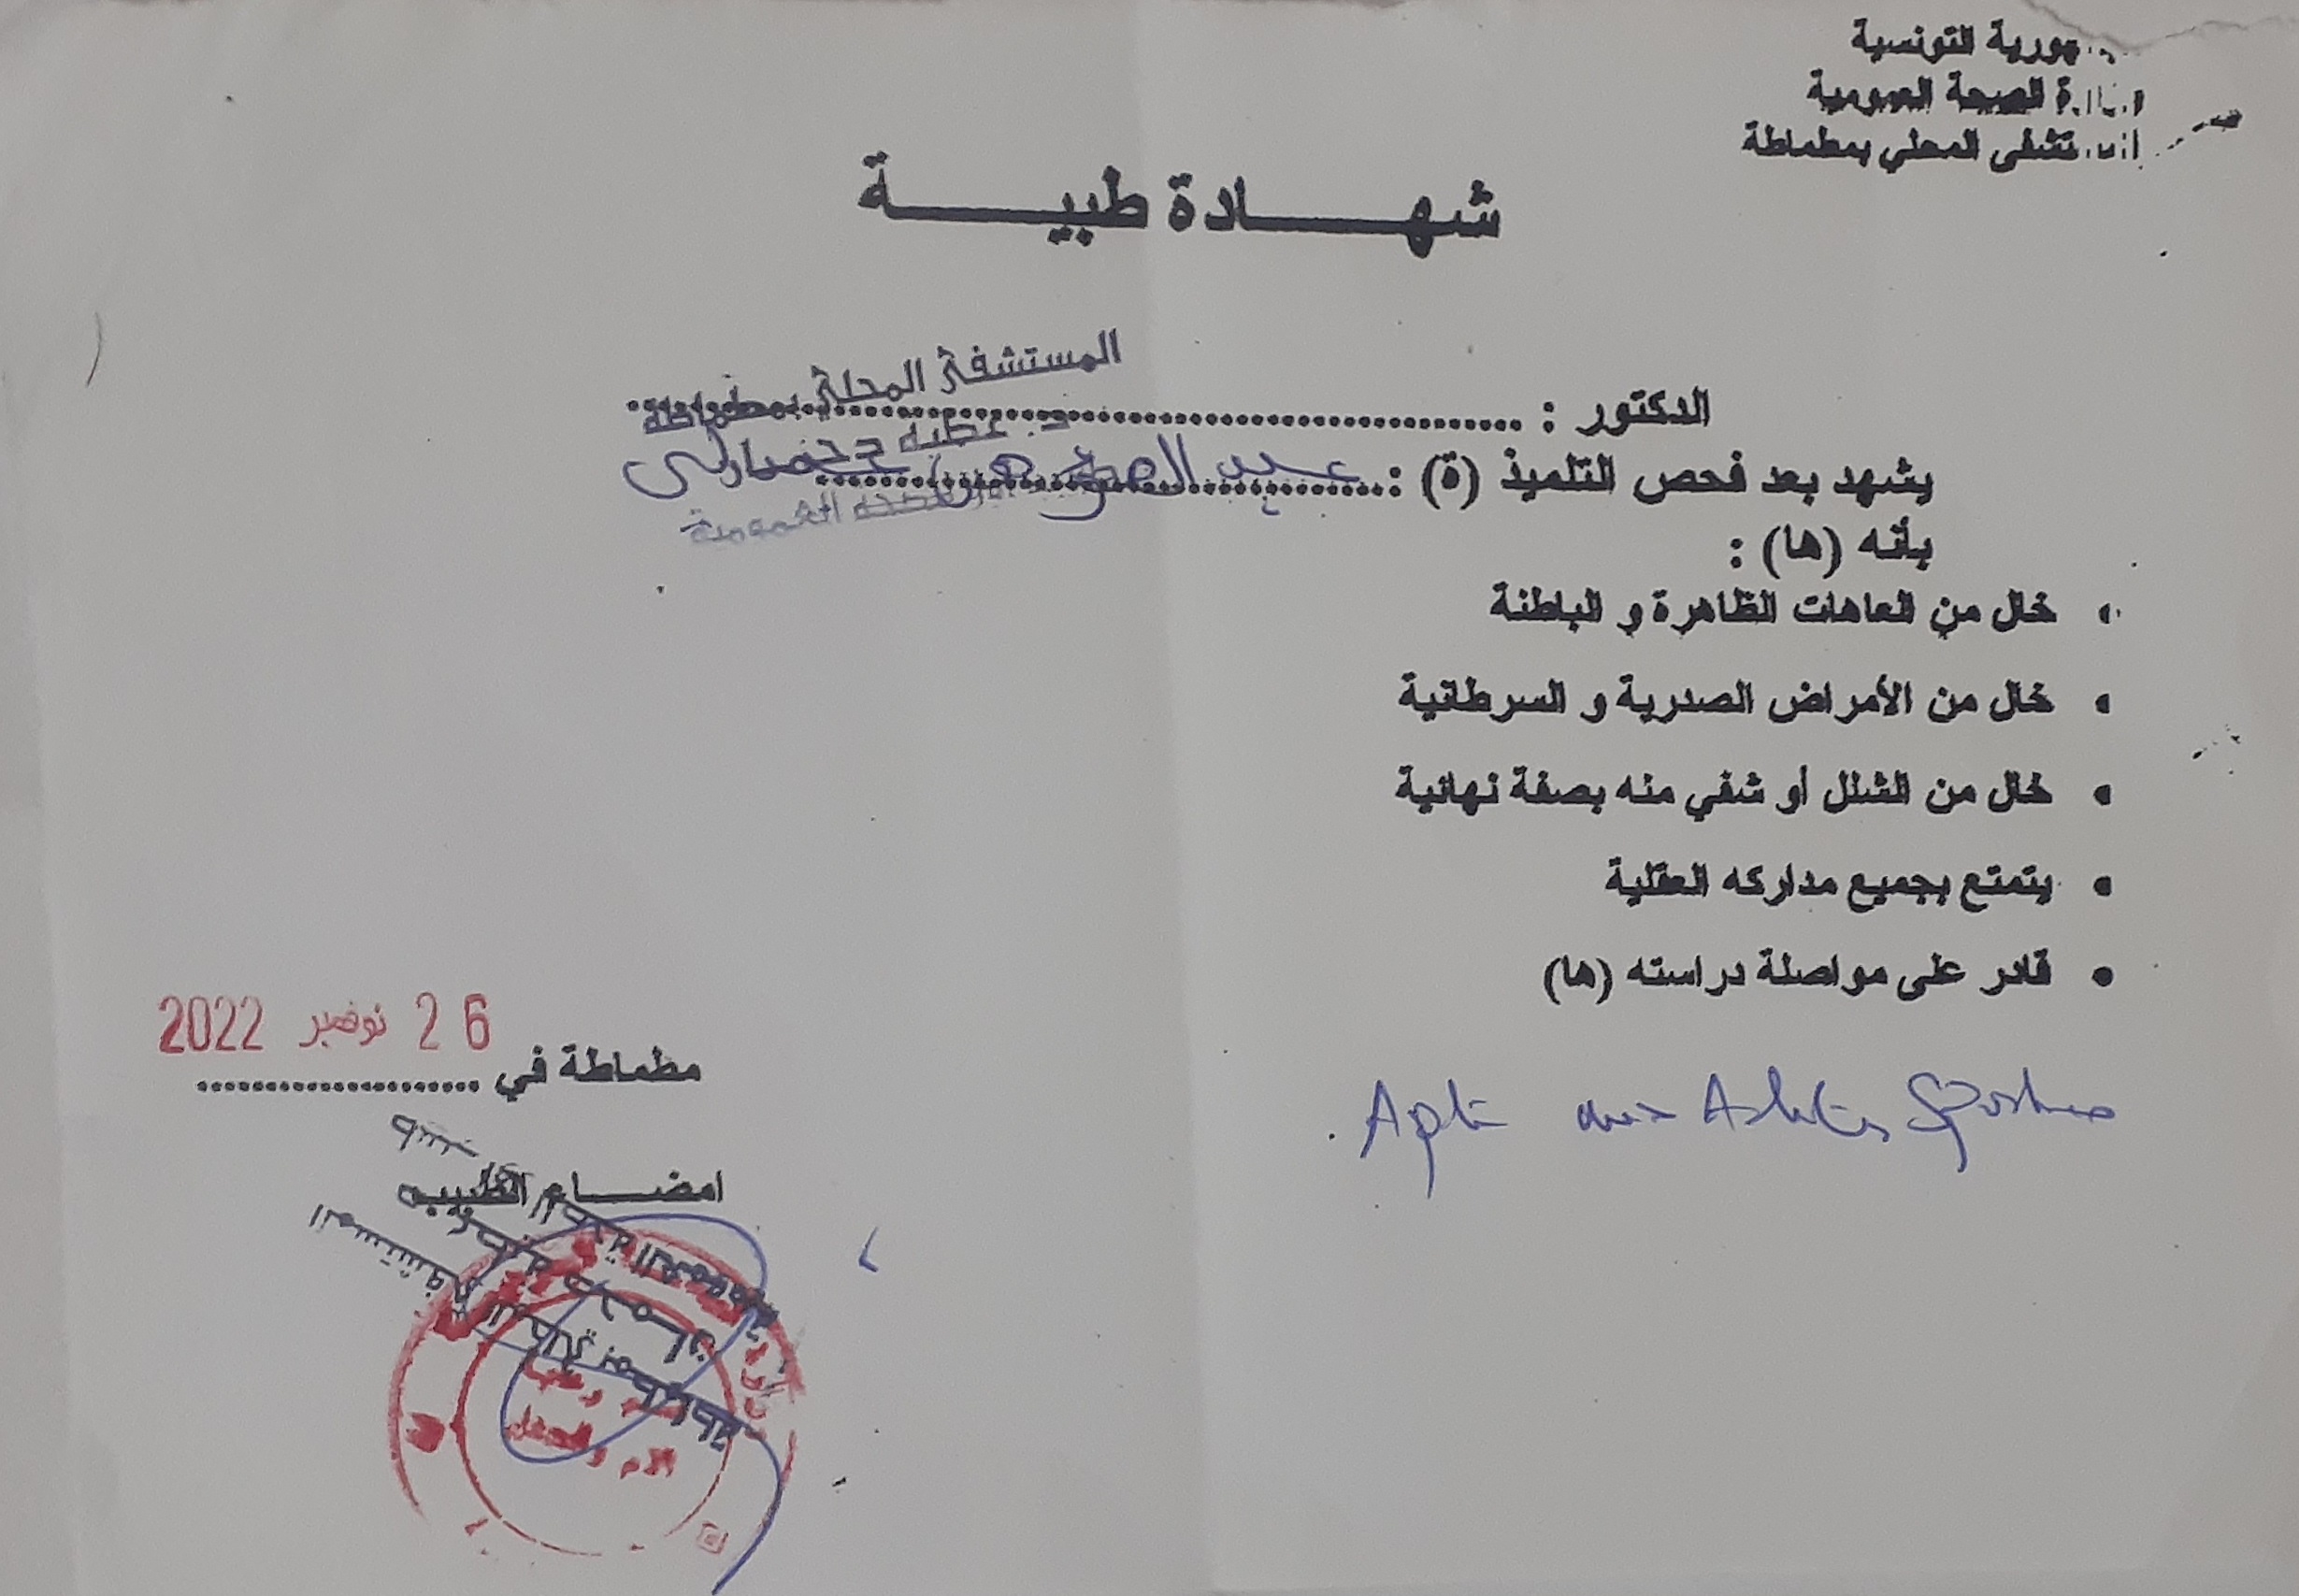 الجمهورية التونسية
وزارة الصحة العمومية
المستشفى المحلي بمطماطة
شهـــــادة طبيـــــة
المستشفى المحلي بمطماطة
الدكتور : ........................................
د. عطية
يشهد بعد فحص التلميذ (ة) : عبد
الصحة العمومية
بأنه (ها) :
• خال من العاهات الظاهرة و الباطنة
• خال من الأمراض الصدرية و السرطانية
• خال من الشلل أو شفي منه بصفة نهائية
• يتمتع بجميع مداركه العقلية
• قادر على مواصلة دراسته (ها)
26 نوفمبر 2022
مطماطة في ....................
Apte aux
امضـــاء الطبيب
الصحة العمومية
المستشفى المحلي بمطماطة